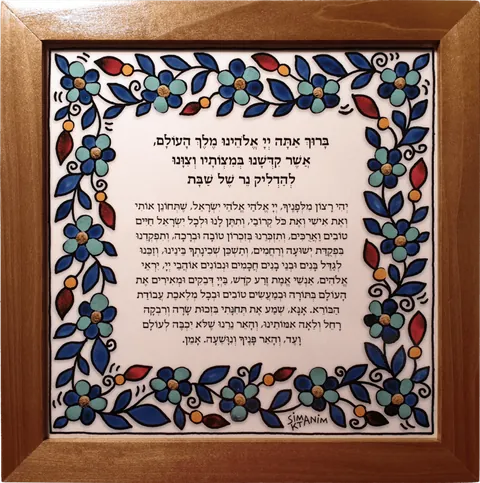 בָּרוּךְ אַתָּה יְיָ אֱלֹהֵינוּ מֶלֶךְ הָעוֹלָם,
אֲשֶׁר קִדְּשָׁנוּ בְּמִצְוֹתָיו וְצִוָּנוּ
לְהַדְלִיק נֵר שֶׁל שַׁבָּת
יְהִי רָצוֹן מִלְּפָנֶיךָ, יְיָ אֱלֹהַי אֱלֹהֵי יִשְׂרָאֵל, שֶׁתְּחוֹנֵן אוֹתִי
וְאֶת אִישִׁי וְאֶת כֹּל קְרוֹבַי, וְתִתֵּן לָנוּ וּלְכָל יִשְׂרָאֵל חַיִּים
טוֹבִים וַאֲרֻכִּים, וְתִזְכְּרֵנוּ בְּזִכְרוֹן טוֹבָה וּבְרָכָה, וְתִפְקְדֵנוּ
בִּפְקֻדַּת יְשׁוּעָה וְרַחֲמִים, וְתַשְׁכֵּן שְׁכִינָתְךָ בֵּינֵינוּ, וְזַכֵּנוּ
לְגַדֵּל בָּנִים וּבְנֵי בָנִים חֲכָמִים וּנְבוֹנִים אוֹהֲבֵי יְיָ, יִרְאֵי
אֱלֹהִים, אַנְשֵׁי אֱמֶת זֶרַע קֹדֶשׁ, בַּיְיָ דְּבֵקִים וּמְאִירִים אֶת
הָעוֹלָם בְּתוֹרָה וּבְמַעֲשִׂים טוֹבִים וּבְכָל מְלֶאכֶת עֲבוֹדַת
הַבּוֹרֵא. אָנָּא, שְׁמַע אֶת תְּחִנָּתִי בִּזְכוּת שָׂרָה וְרִבְקָה
רָחֵל וְלֵאָה אִמּוֹתֵינוּ, וְהָאֵר נֵרֵנוּ שֶׁלֹּא יִכְבֶּה לְעוֹלָם
וָעֶד, וְהָאֵר פָּנֶיךָ וְנִוָּשֵׁעָה, אָמֵן.
SIMANIM
KT